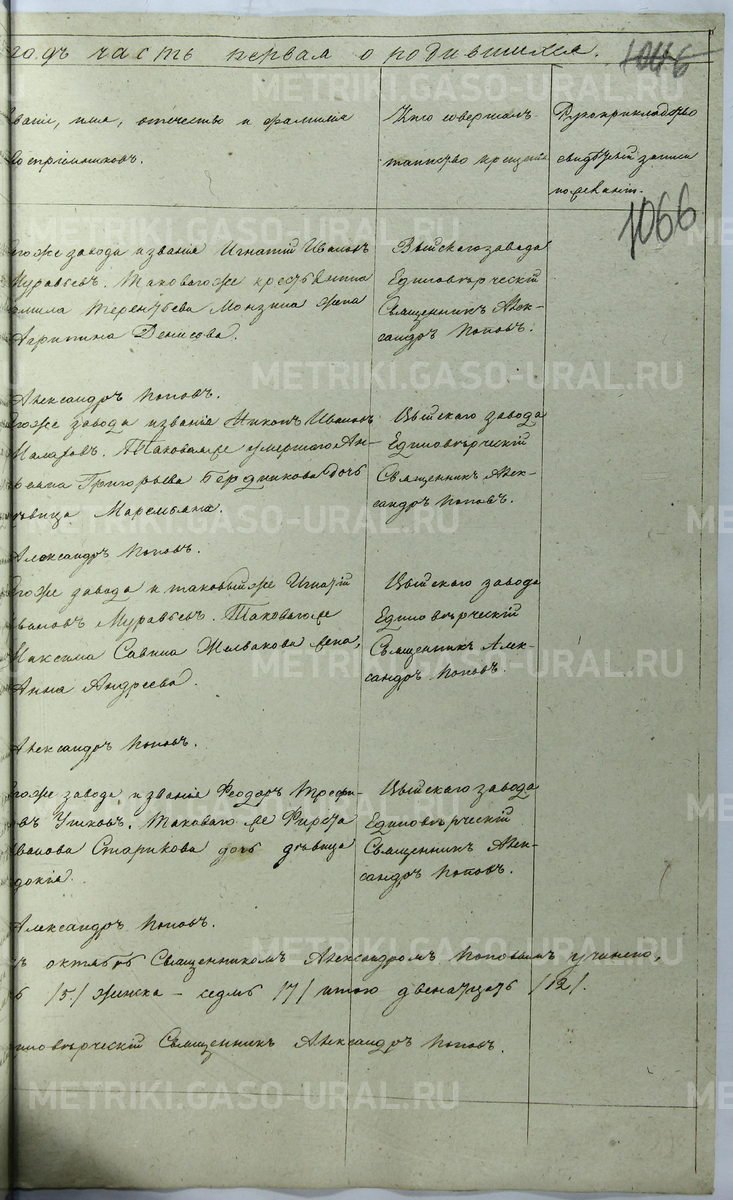 годъ часть первая о родившихся.
1046
званіе, имя, отечество и фамилія
воспріемниковъ.
Кто совершалъ
таинство крещенія
Рукоприкладство
свидѣтелей записи
по желанію.
1066
тогоже завода и званія Игнатій Ивановъ
Муравьевъ. Таковагоже крестьянина
Терентьева Монзина жена
Агрипина Денисова.
Выйскаго завода
Единовѣрческій
Священникъ Алек-
сандръ Поповъ.
Александръ Поповъ.
тогоже завода и званія Никонъ Ивановъ
Таковагоже умершаго Ан-
Григорьева Бердникова дочь
дѣвица Маремьяна.
Выйскаго завода
Единовѣрческій
Священникъ Алек-
сандръ Поповъ.
Александръ Поповъ.
тогоже завода и таковыйже Игнатій
Ивановъ Муравьевъ. Таковагоже
Максима Савина Желвакова жена,
Анна Андреева.
Выйскаго завода
Единовѣрческій
Священникъ Алек-
сандръ Поповъ
Александръ Поповъ.
тогоже завода и званія Феодоръ Трофи-
мовъ Ушковъ. Таковаго же Фирста
Иванова Старикова дочь дѣвица
Выйскаго завода
Единовѣрческій
Священникъ Алек-
сандръ Поповъ.
Александръ Поповъ.
октябрь Священникомъ Александромъ Поповымъ учинено,
/5/ женска – седмь /7/ итого двенатцать /12/.
Единовѣрческій Священникъ Александръ Поповъ.
METRIKI.GASO-URAL.RU